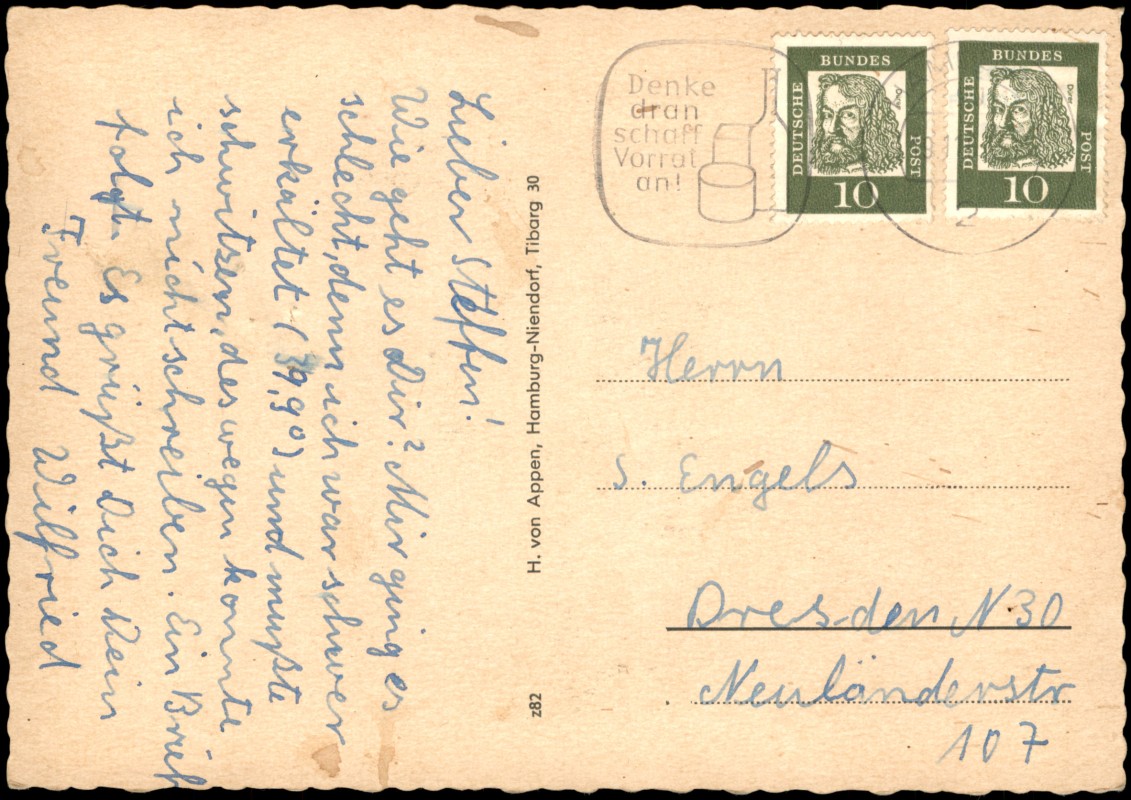 Lieber Steffen!
Wie geht es Dir? Mir ging es
schlecht, denn ich war schwer
erkältet (39,9°) und mußte
schwitzen, deswegen konnte
ich nicht schreiben. Ein Brief
folgt. Es grüßt Dich Dein
Freund Wilfried
H. von Appen, Hamburg-Niendorf, Tibarg 30
z82
Denke
dran
schaff
Vorrat
an!
DEUTSCHE
BUNDES
POST
Dürer
10
DEUTSCHE
BUNDES
POST
Dürer
10
2
Herrn
S. Engels
Dresden N 30
Neuländerstr
107